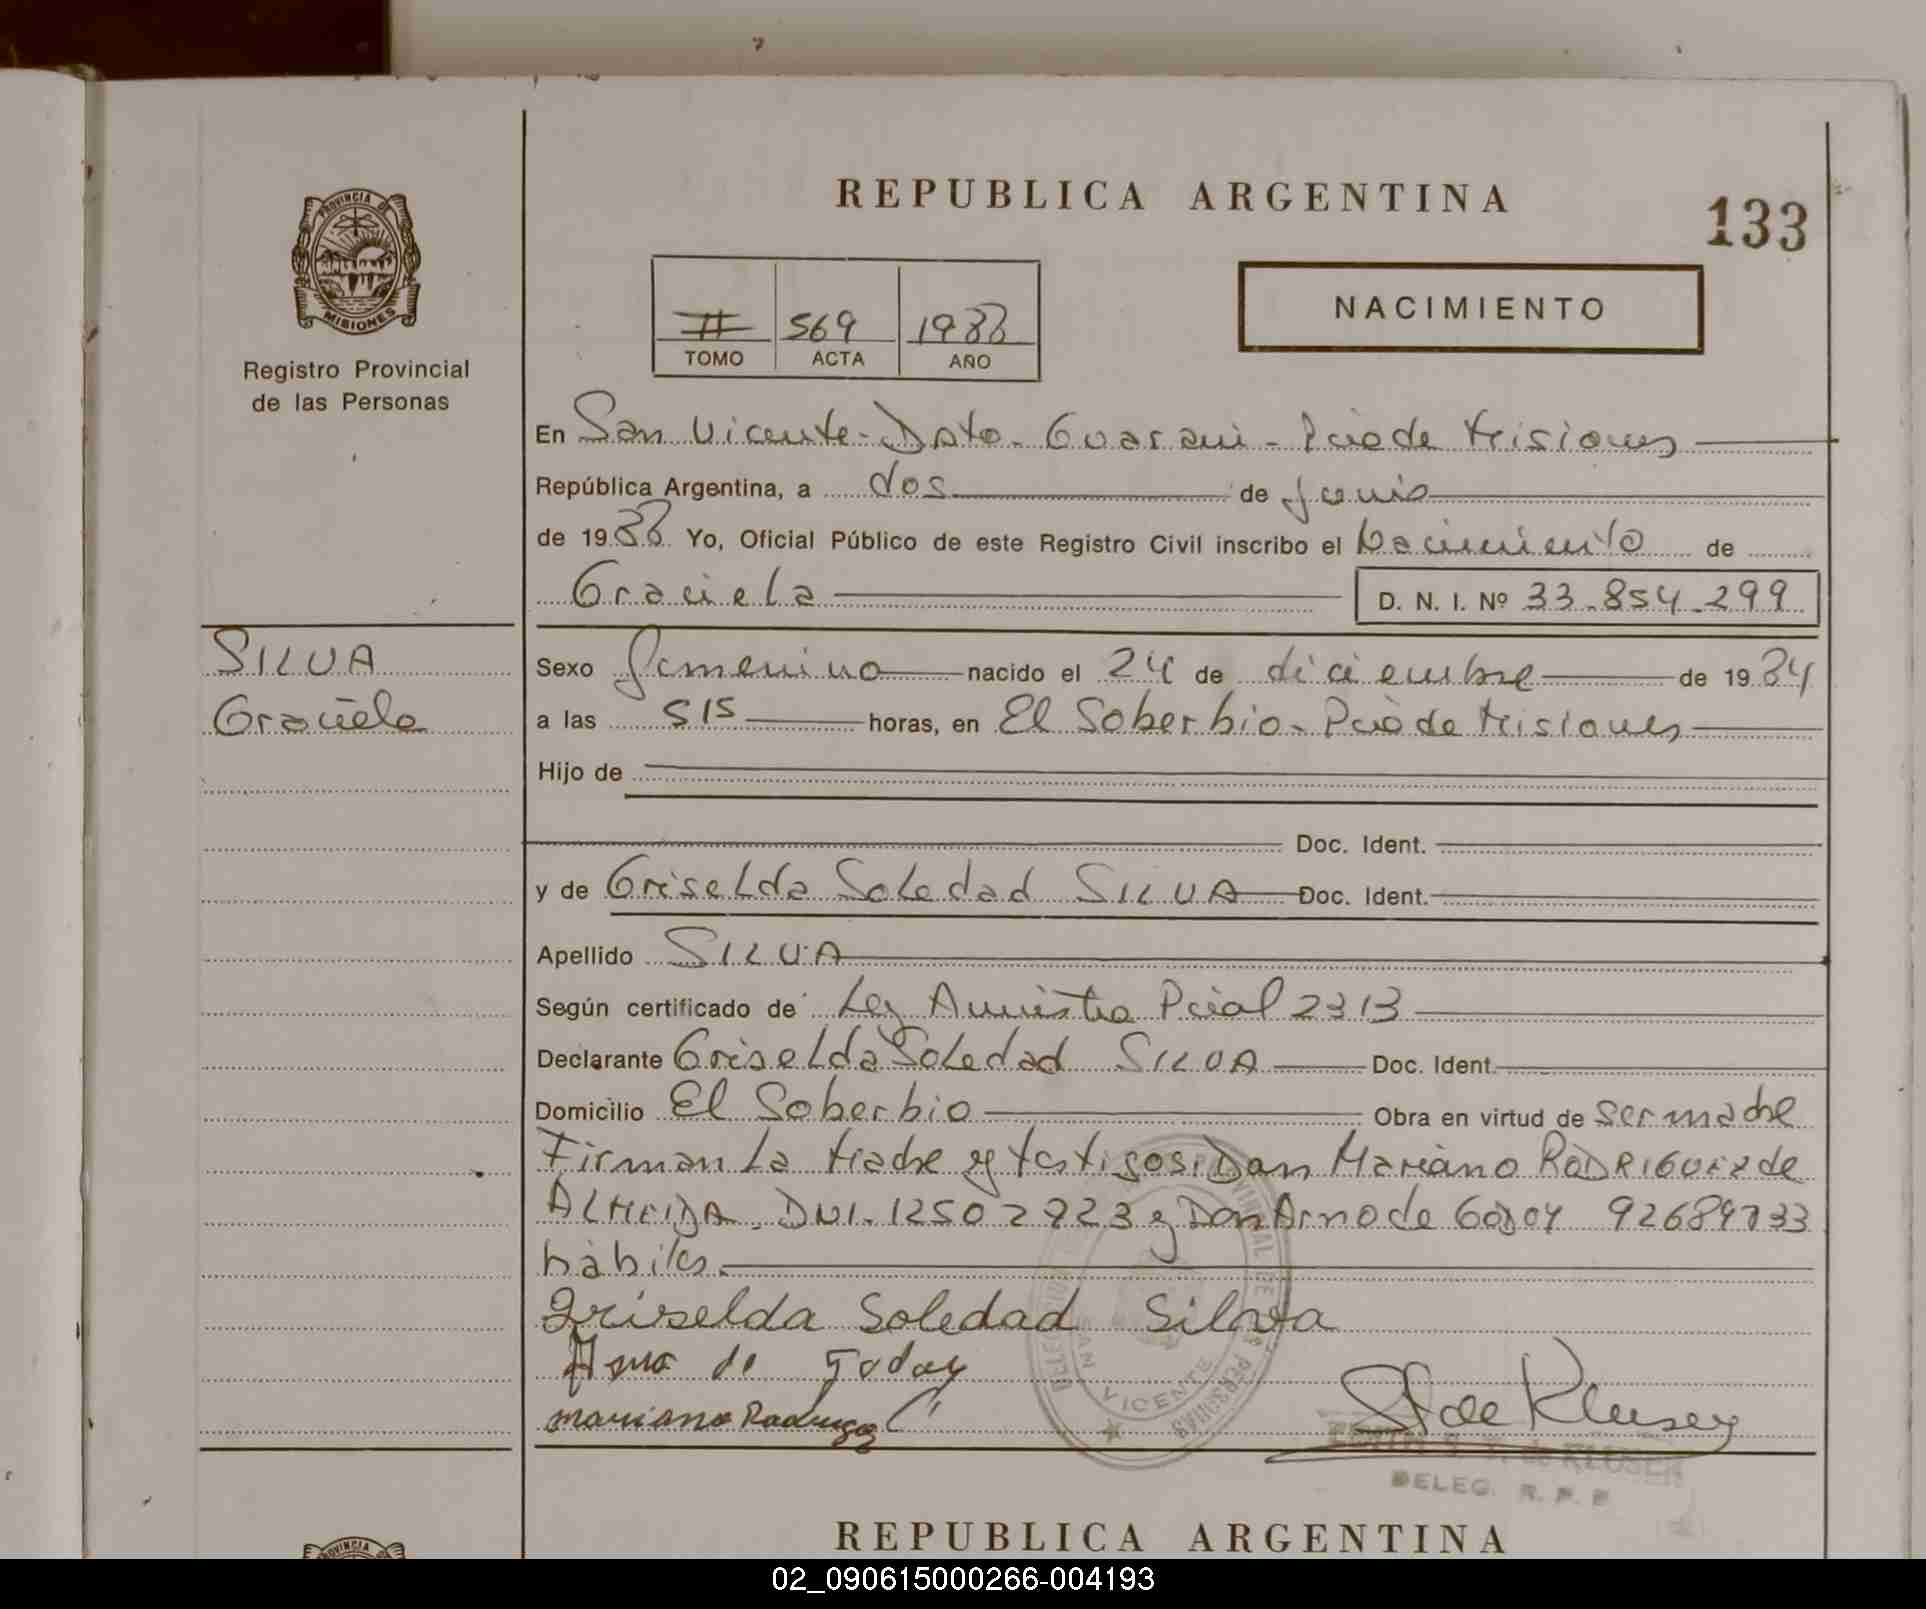 REPUBLICA ARGENTINA
133
PROVINCIA DE
MISIONES
Registro Provincial
de las Personas
II 569 1988
TOMO ACTA AÑO
NACIMIENTO
En San Vicente - Dpto. Guarani - Pcia de Misiones
República Argentina, a dos de Junio
de 1988 Yo, Oficial Público de este Registro Civil inscribo el Nacimiento de
Graciela D. N. I. Nº 33.854.299
SILVA
Graciela
Sexo femenino nacido el 24 de diciembre de 1984
a las 515 horas, en El Soberbio - Pcia de Misiones
Hijo de
Doc. Ident.
y de Griselda Soledad SILVA Doc. Ident.
Apellido SILVA
Según certificado de Ley Amnistia Pcial 2313
Declarante Griselda Soledad SILVA Doc. Ident.
Domicilio El Soberbio Obra en virtud de ser madre
Firman La Madre y testigos: Don Mariano RODRIGUEZ de
ALMEIDA. DNI. 12502823 y Don Arno de Godoy 92689733
hàbiles.
Griselda Soledad Silva
Arno de Godoy
mariano Rodriguez
SAN VICENTE
S. de Klusen
de KLUSEN
DELEG. R. P. P.
REPUBLICA ARGENTINA
PROVINCIA
02_090615000266-004193